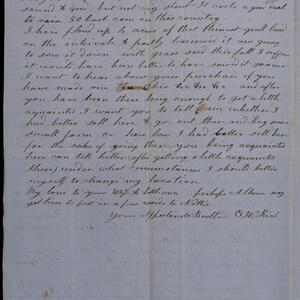 sound & good but not very stout. It costs a good deal
to raise 50 bush corn in this country.
I have plowd up 4 acres of that thinest grass land
on the intervale & partly harrowed it am going
to sow it down with grass seed this fall I suppose
it would have been better to have sowed it sooner
I want to hear about your purchase if you
have made one Ohio &c &c &c and after
you have been there long enough to get a little
acquainted I want you to tell me whether I
had better sell here & go out there and buy some
small farm or how low I had better sell here
for the sake of going there you being acquainted
here can tell better (after getting a little acquainted
there) under what circumstances I should better
myself to change my location
My love to your wife & little ones perhaps
may get time to put in a few words to Nettie
Your Affectionate Brother